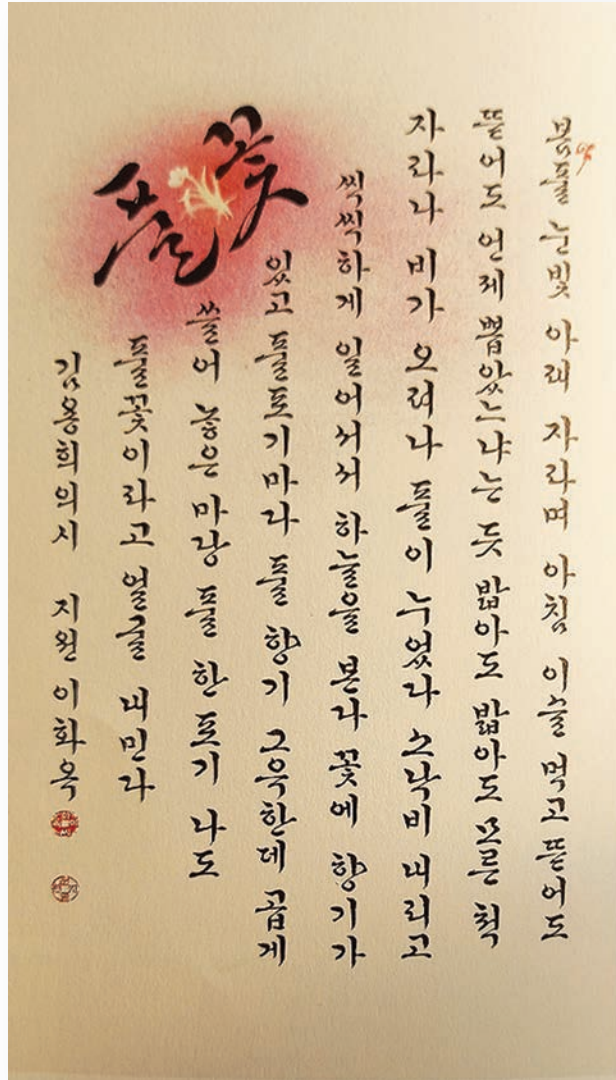 풀꽃
봄풀 눈빛 아래 자라며 아침 이슬 먹고 뜯어도
뜯어도 언제 뽑았느냐는 듯 밟아도 밟아도 모른 척
자라나 비가 오려나 풀이 누웠다 소낙비 내리고
씩씩하게 일어서서 하늘을 본다 꽃에 향기가
있고 풀포기마다 풀 향기 그윽한데 곱게
쓸어 놓은 마당 풀 한 포기 나도
풀꽃이라고 얼굴 내민다
김용희의시 지원 이화옥